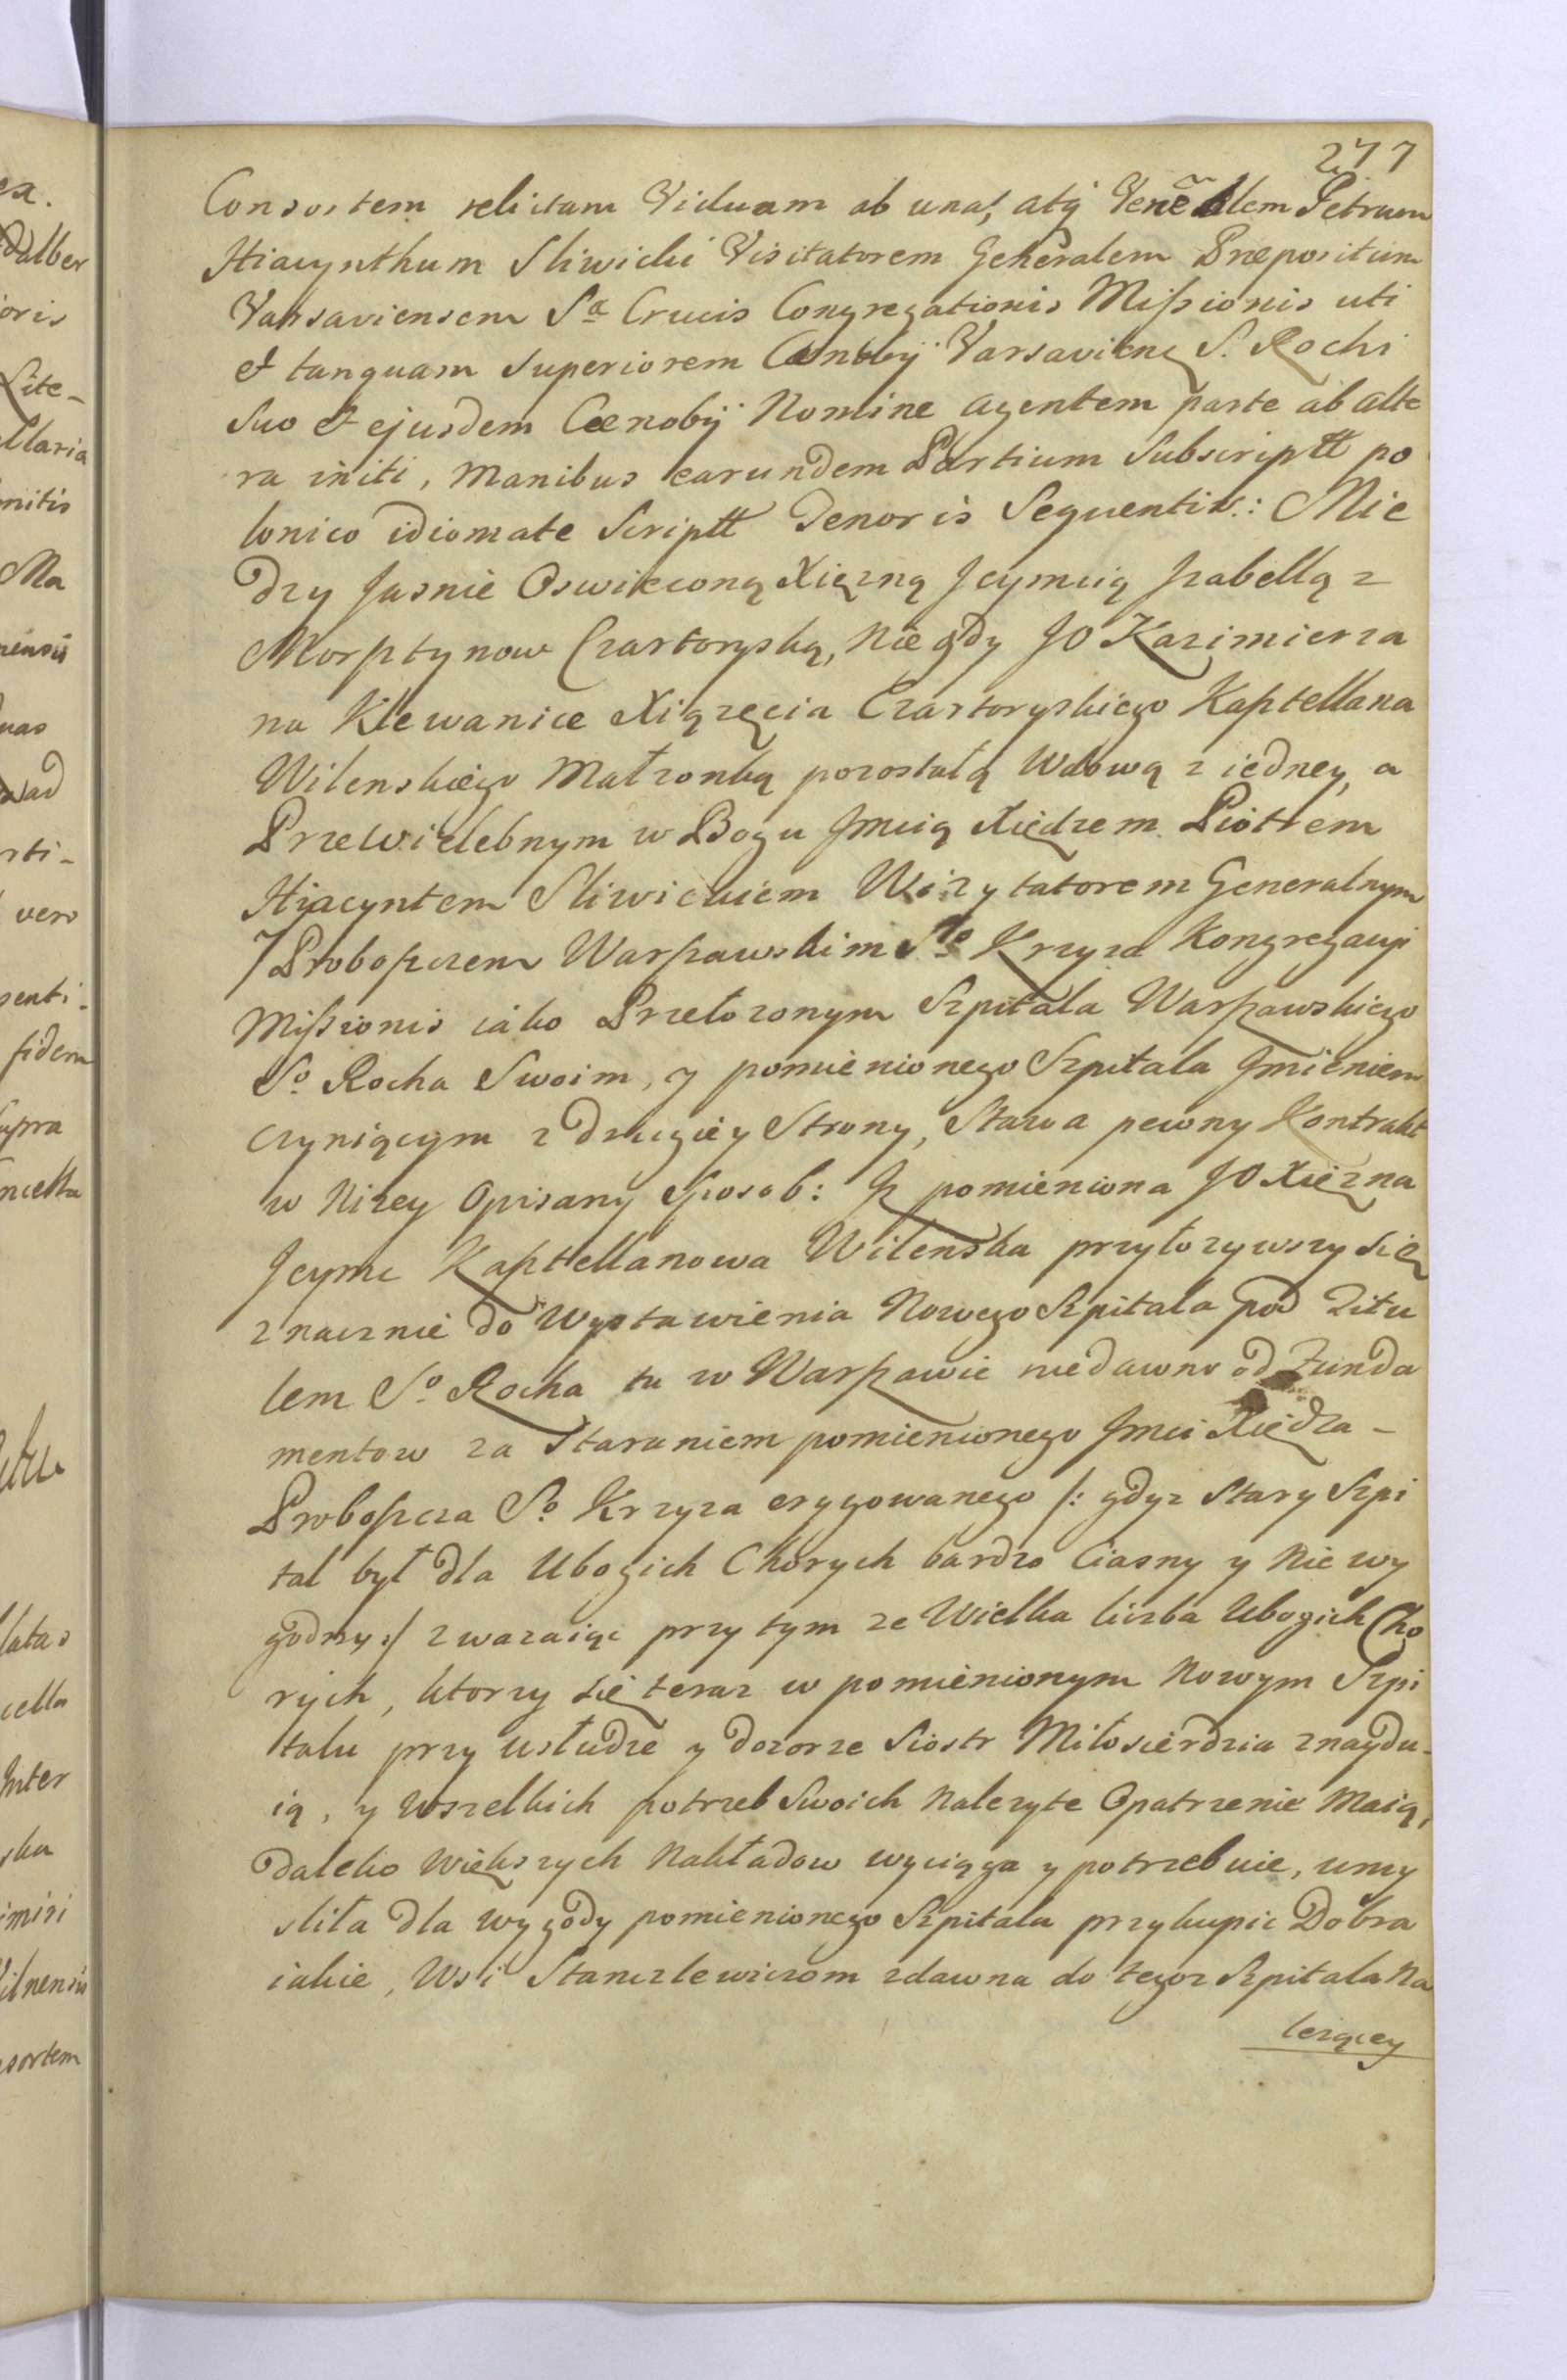 277
Consortem relictam Viduam ab una, atq Venẽblem Petrum
Hiacynthum Sliwicki Visitatorem Generalem Præpositum
Varsaviensem Sæ Crucis Congregationis Missionis uti
et tanquam Superiorem Cœnobij Varsavien S. Rochi
Suo et ejusdem Cœnobij Nomine agentem parte ab alte
ra initi, Manibus earundem Partium Subscriptt po
lonico idiomate Scriptt Tenoris Sequentis: Mie
dzy Jasnie Oswieconą Xięzną Jeymcią Jzabellą z
Morsztynow Czartoryską, Niegdy JO Kazimierza
na Klewanice Xiązęcia Czartoryskiego Kasztellana
Wilenskiego Małzonką pozostałą Wdową z iedney, a
Przewielebnym w Bogu Jmcią Xiędzem Piotrem
Hiacyntem Sliwickiem Wizytatorem Generalnym
Proboszczem Warszawskim Sto Krzyza Kongregacyi
Missionis iako Przełozonym Szpitala Warszawskiego
So Rocha Swoim, y pomienionego Szpitala Jmieniem
czyniącym z drugiey Strony, Stawa pewny Kontrakt
w Nizey Opisany Sposob: Jz pomieniona JO Xięzna
Jeymc Kasztellanowa Wilenska przyłozywszy się
znacznie do Wystawienia Nowego Szpitala pod Titu
lem So Rocha tu w Warszawie niedawno od Funda
mentow za Staraniem pomienionego Jmci Xiędza -
Proboszcza So Krzyza erygowanego /: gdyz Stary Szpi
tal był dla Ubogich Chorych bardzo Ciasny y Nie wy
godny :/ zwazaiąc przy tym ze Wielka liczba Ubogich Cho
rych, ktorzy się teraz w pomienionym Nowym Szpi
talu przy usłudze y dozorze Siostr Miłosierdzia znaydu-
ią, y Wszelkich potrzeb Swoich Nalezyte Opatrzenie Maią,
daleko Większych Nakładow wyciąga y potrzebuie, umy
sliła dla wygody pomienionego Szpitala przykupic Dobra
iakie, Wsi Stanczlewiczom zdawna do tegoz Szpitala Na
lezącey